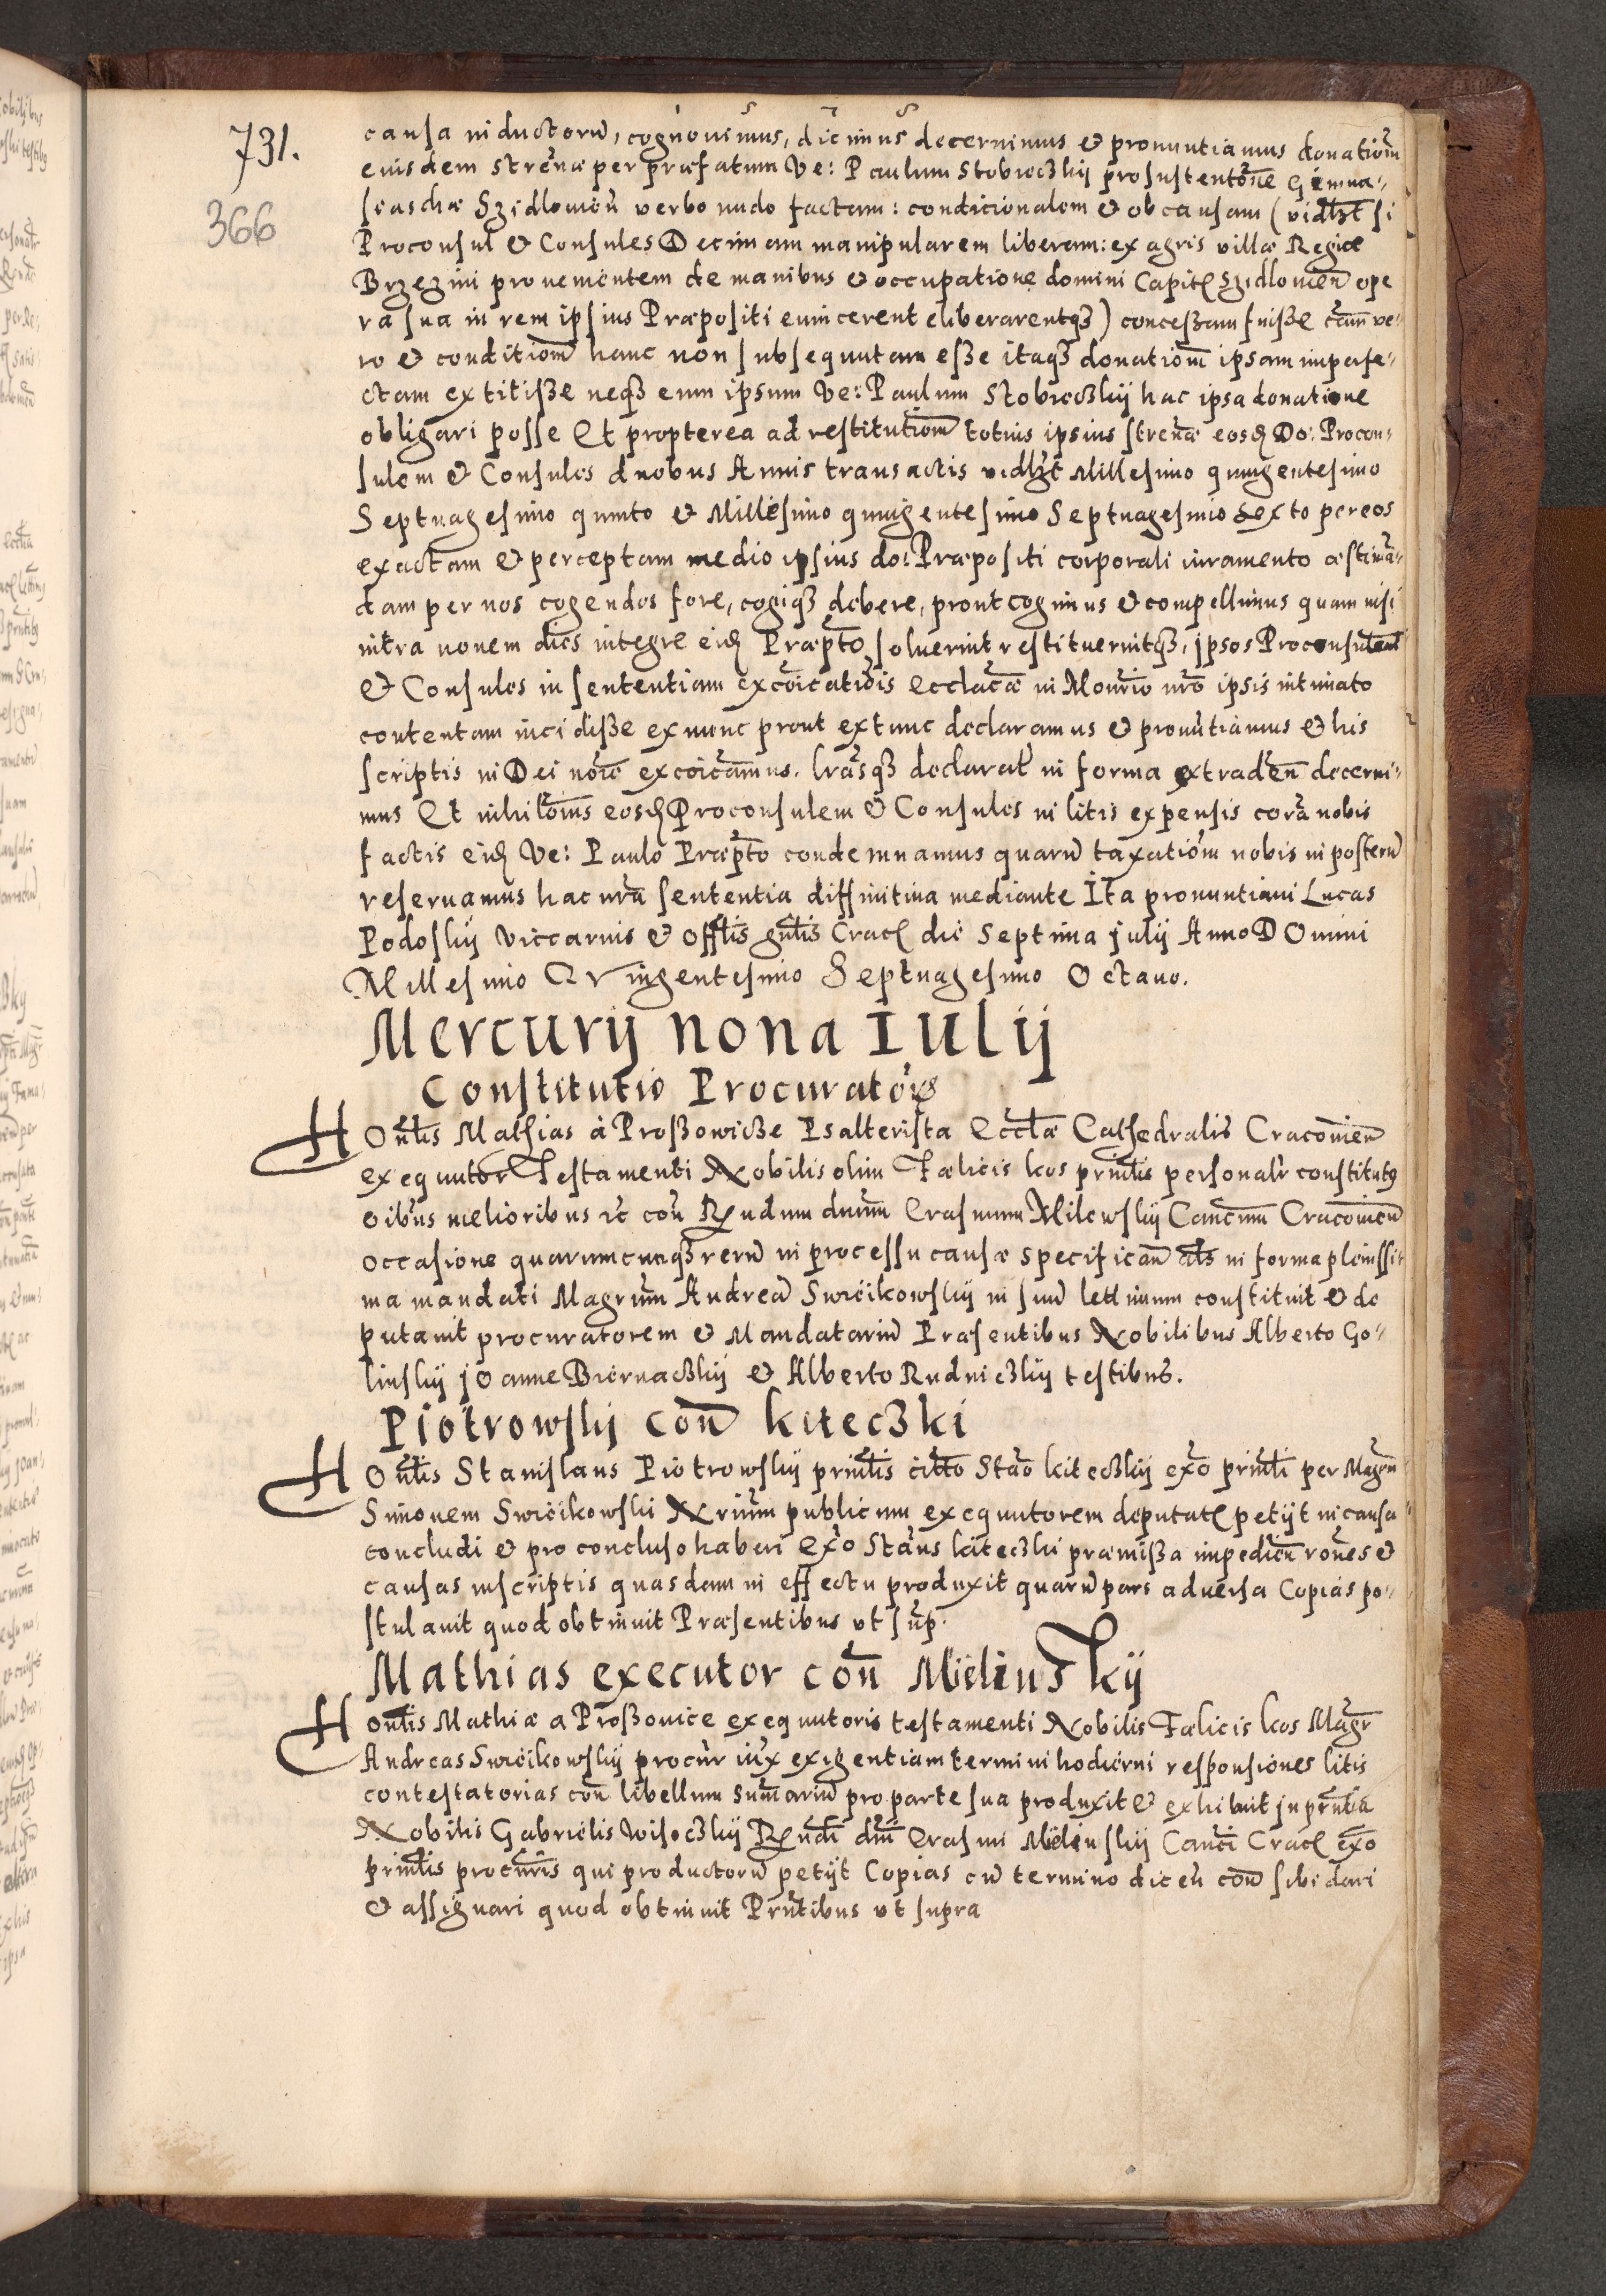 1 5 7 8
731.
366
causa inductorũ, cognouimus, dicimus decernimus & pronuntiamus donatiom̃
eiusdem strenæ per præfatum Ve: Paulum Stobieczkij pro sustentõne Gimna-
seaschæ Szidlouien̄ verbo nudo factam: condicionalem & ob causam (vidlzt si
Proconsul & Consules Decimam manipularem liberam: ex agris villæ Regiæ
Brzezini prouenientem de manibus & occupatione domini Capit Szidlouien̄ ope
ra sua in rem ipsius Præpositi euincerent eliberarentq3) conceßam fuiße cam̄ ve-
ro & conditiom̄ hanc non subsequutam eße itaq3 donatiom̄ ipsam imperfe-
ctam extitiße neq3 eum ipsum Ve: Paulum Stobieczkij hac ipsa donatione
obligari posse Et propterea ad restitutiom̄ totius ipsius strenæ eosd Do: Procon-
sulem & Consules duobus Annis transactis vidlzt Millesimo quingentesimo
Septuagesimo quinto & Millesimo quingentesimo Septuagesimo sexto per eos
exactam & perceptam medio ipsius do: Præpositi corporali iuramento æstimã-
dam per nos cogendos fore, cogiq3 debere, prout cogimus & compellimus quam nisi
intra nouem dies integre eid Præpto soluerint restituerintq3, ipsos Proconsulem
& Consules in sententiam excoicatiõis ecclacæ in Monrio nr̃o ipsis intimato
contentam incidiße ex nunc prout ex tunc declaramus & pronũtiamus & his
scriptis in Dei noĩe excoicamus. lrasq3 declarat in forma extraden̄ decerni-
mus Et nihilomĩus eosd Proconsulem & Consules in litis expensis corã nobis
factis eid Ve: Paulo Præpto condemnamus quarũ taxatiom̃ nobis in posterũ
reseruamus hac nr̃a sententia diffinitiua mediante Ita pronuntiaui Lucas
Podoskij viccarius & Offlis gnlis Crac die Septima julij Anno DOmini
Millesimo QVingentesimo Septuagesimo Octauo.
Mercurij nona Iulij
Constitutio Procuratoris
HOnlis Mathias à Proßowicße Psalterista Ecclæ Cathedralis Cracouien̄
exequutor Testamenti Nobilis olim Fælicis kos prñlis personalr constitutg
oibus melioribus ic con̄ Rndum dnum̄ Erasmum Milewskij Canc̃um Cracouien̄
occasione quarumcunq3 rerũ in processu causæ specifican̄ als in forma plenissi-
ma mandati Magrum̄ Andreã Swieikowskij in suũ lettimum constituit & de
putauit procuratorem & Mandatariũ Præsentibus Nobilibus Alberto Go-
linskij jOanne Biernaczkij & Alberto Rudniczkij testibus.
Piotrowskij con̄ kiteczki
HOnlis Stanislaus Piotrowskij prñlis citto Stão kiteczkij exõ prñli per Magrũ
Simonem Swieikowski Nrium̄ publicum exequutorem deputat petijt in causa
concludi & pro concluso haberi Exõ Stãus kiteczki præmißa impedien̄ rões &
causas inscriptis quasdam in effectu produxit quarũ pars aduersa Copias po-
stulauit quod obtinuit Præsentibus vt sup̃.
Mathias executor con̄ MielinsTkij
Honlis Mathiæ a Proßouice exequutoris testamenti Nobilis Fælicis kos Magr
Andreas Swieikowskij procur̄ iux exigentiam termini hodierni responsiones litis
contestatorias con̄ libellum sum̄ariũ pro parte sua produxit & exhibuit in prntia
Nobilis Gabrielis Wisoczkij Rndi dni Erasmi Mielinskij Canci Crac exõ
prñlis procuris qui productorũ petijt Copias cũ termino dicen̄ con̄ sibi dari
& assignari quod obtinuit Prntibus vt supra